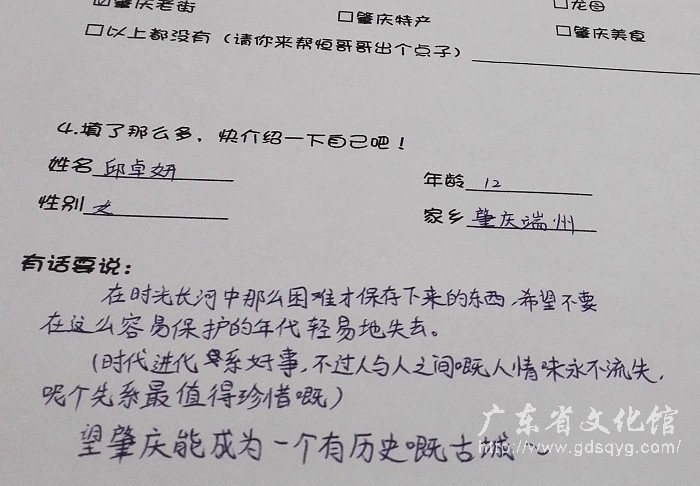 ☑肇庆老街 □肇庆特产 □龙母
□以上都没有（请你来帮恒哥哥出个点子） □肇庆美食
4.填了那么多，快介绍一下自己吧！
姓名 邱卓妍 年龄 12
性别 女 家乡 肇庆端州
有话要说：
在时光长河中那么困难才保存下来的东西，希望不要
在这么容易保护的年代轻易地失去。
（时代进化系好事，不过人与人之间嘅人情味永不流失，
呢个先系最值得珍惜嘅）
望肇庆能成为一个有历史嘅古城~
广东省文化馆
www.gdsqyg.com